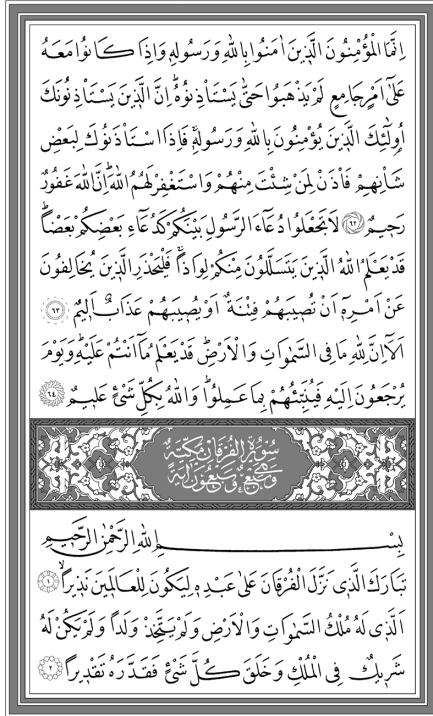 اِنَّمَا الْمُؤْمِنُونَ الَّذِينَ اٰمَنُوا بِاللّٰهِ وَرَسُولِهِ وَاِذَا كَانُوا مَعَهُ
عَلٰى اَمْرٍ جَامِعٍ لَمْ يَذْهَبُوا حَتّٰى يَسْتَاْذِنُوهُۜ اِنَّ الَّذِينَ يَسْتَاْذِنُونَكَ
اُولٰٓئِكَ الَّذِينَ يُؤْمِنُونَ بِاللّٰهِ وَرَسُولِهِۚ فَاِذَا اسْتَاْذَنُوكَ لِبَعْضِ
شَاْنِهِمْ فَاْذَنْ لِمَنْ شِئْتَ مِنْهُمْ وَاسْتَغْفِرْ لَهُمُ اللّٰهَۜ اِنَّ اللّٰهَ غَفُورٌ
رَحِيمٌ ﴿٦٢﴾ لَا تَجْعَلُوا دُعَٓاءَ الرَّسُولِ بَيْنَكُمْ كَدُعَٓاءِ بَعْضِكُمْ بَعْضًاۜ
قَدْ يَعْلَمُ اللّٰهُ الَّذِينَ يَتَسَلَّلُونَ مِنْكُمْ لِوَاذًاۚ فَلْيَحْذَرِ الَّذِينَ يُخَالِفُونَ
عَنْ اَمْرِهِٓ اَنْ تُصِيبَهُمْ فِتْنَةٌ اَوْ يُصِيبَهُمْ عَذَابٌ اَلِيمٌ ﴿٦٣﴾
اَلَٓا اِنَّ لِلّٰهِ مَا فِي السَّمٰوَاتِ وَالْاَرْضِۜ قَدْ يَعْلَمُ مَٓا اَنْتُمْ عَلَيْهِۜ وَيَوْمَ
يُرْجَعُونَ اِلَيْهِ فَيُنَبِّئُهُمْ بِمَا عَمِلُواۜ وَاللّٰهُ بِكُلِّ شَيْءٍ عَلِيمٌ ﴿٦٤﴾
سُورَةُ الْفُرْقَانِ مَكِّيَّةٌ
وَهِيَ سَبْعٌ وَسَبْعُونَ اٰيَةً
بِسْمِ اللّٰهِ الرَّحْمٰنِ الرَّحِيمِ
تَبَارَكَ الَّذِي نَزَّلَ الْفُرْقَانَ عَلٰى عَبْدِهِ لِيَكُونَ لِلْعَالَمِينَ نَذِيرًاۙ ﴿١﴾
اَلَّذِي لَهُ مُلْكُ السَّمٰوَاتِ وَالْاَرْضِ وَلَمْ يَتَّخِذْ وَلَدًا وَلَمْ يَكُنْ لَهُ
شَرِيكٌ فِي الْمُلْكِ وَخَلَقَ كُلَّ شَيْءٍ فَقَدَّرَهُ تَقْدِيرًا ﴿٢﴾